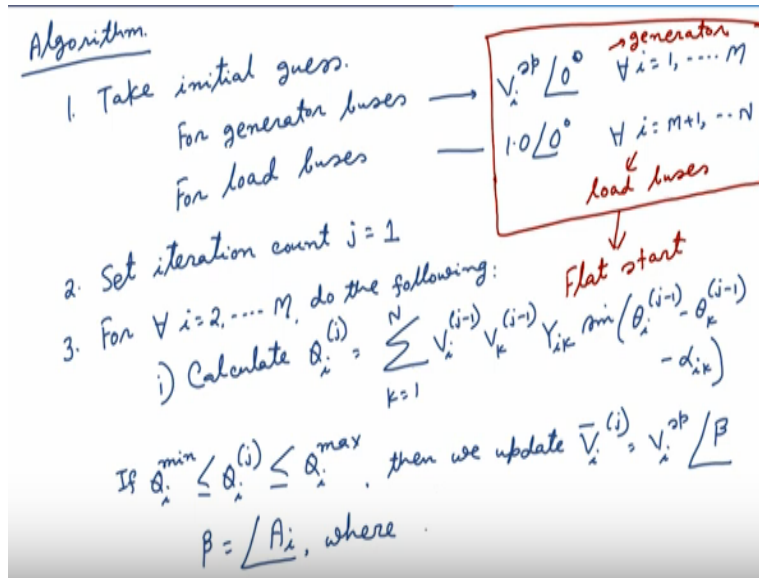 Algorithm.
1. Take initial guess.
For generator buses → V_i^sp ∠0° ∀ i = 1, ---- M → generator
For load buses — 1.0∠0° ∀ i = M+1, -- N
load buses
Flat start
2. Set iteration count j = 1
3. For ∀ i = 2, ---- M, do the following:
i) Calculate Q_i^(j) = Σ_{k=1}^{N} V_i^(j-1) V_k^(j-1) Y_ik sin(θ_i^(j-1) - θ_k^(j-1)
- α_ik)
If Q_i^min ≤ Q_i^(j) ≤ Q_i^max, then we update V̄_i^(j) = V_i^sp ∠β
β = ∠A_i, where .